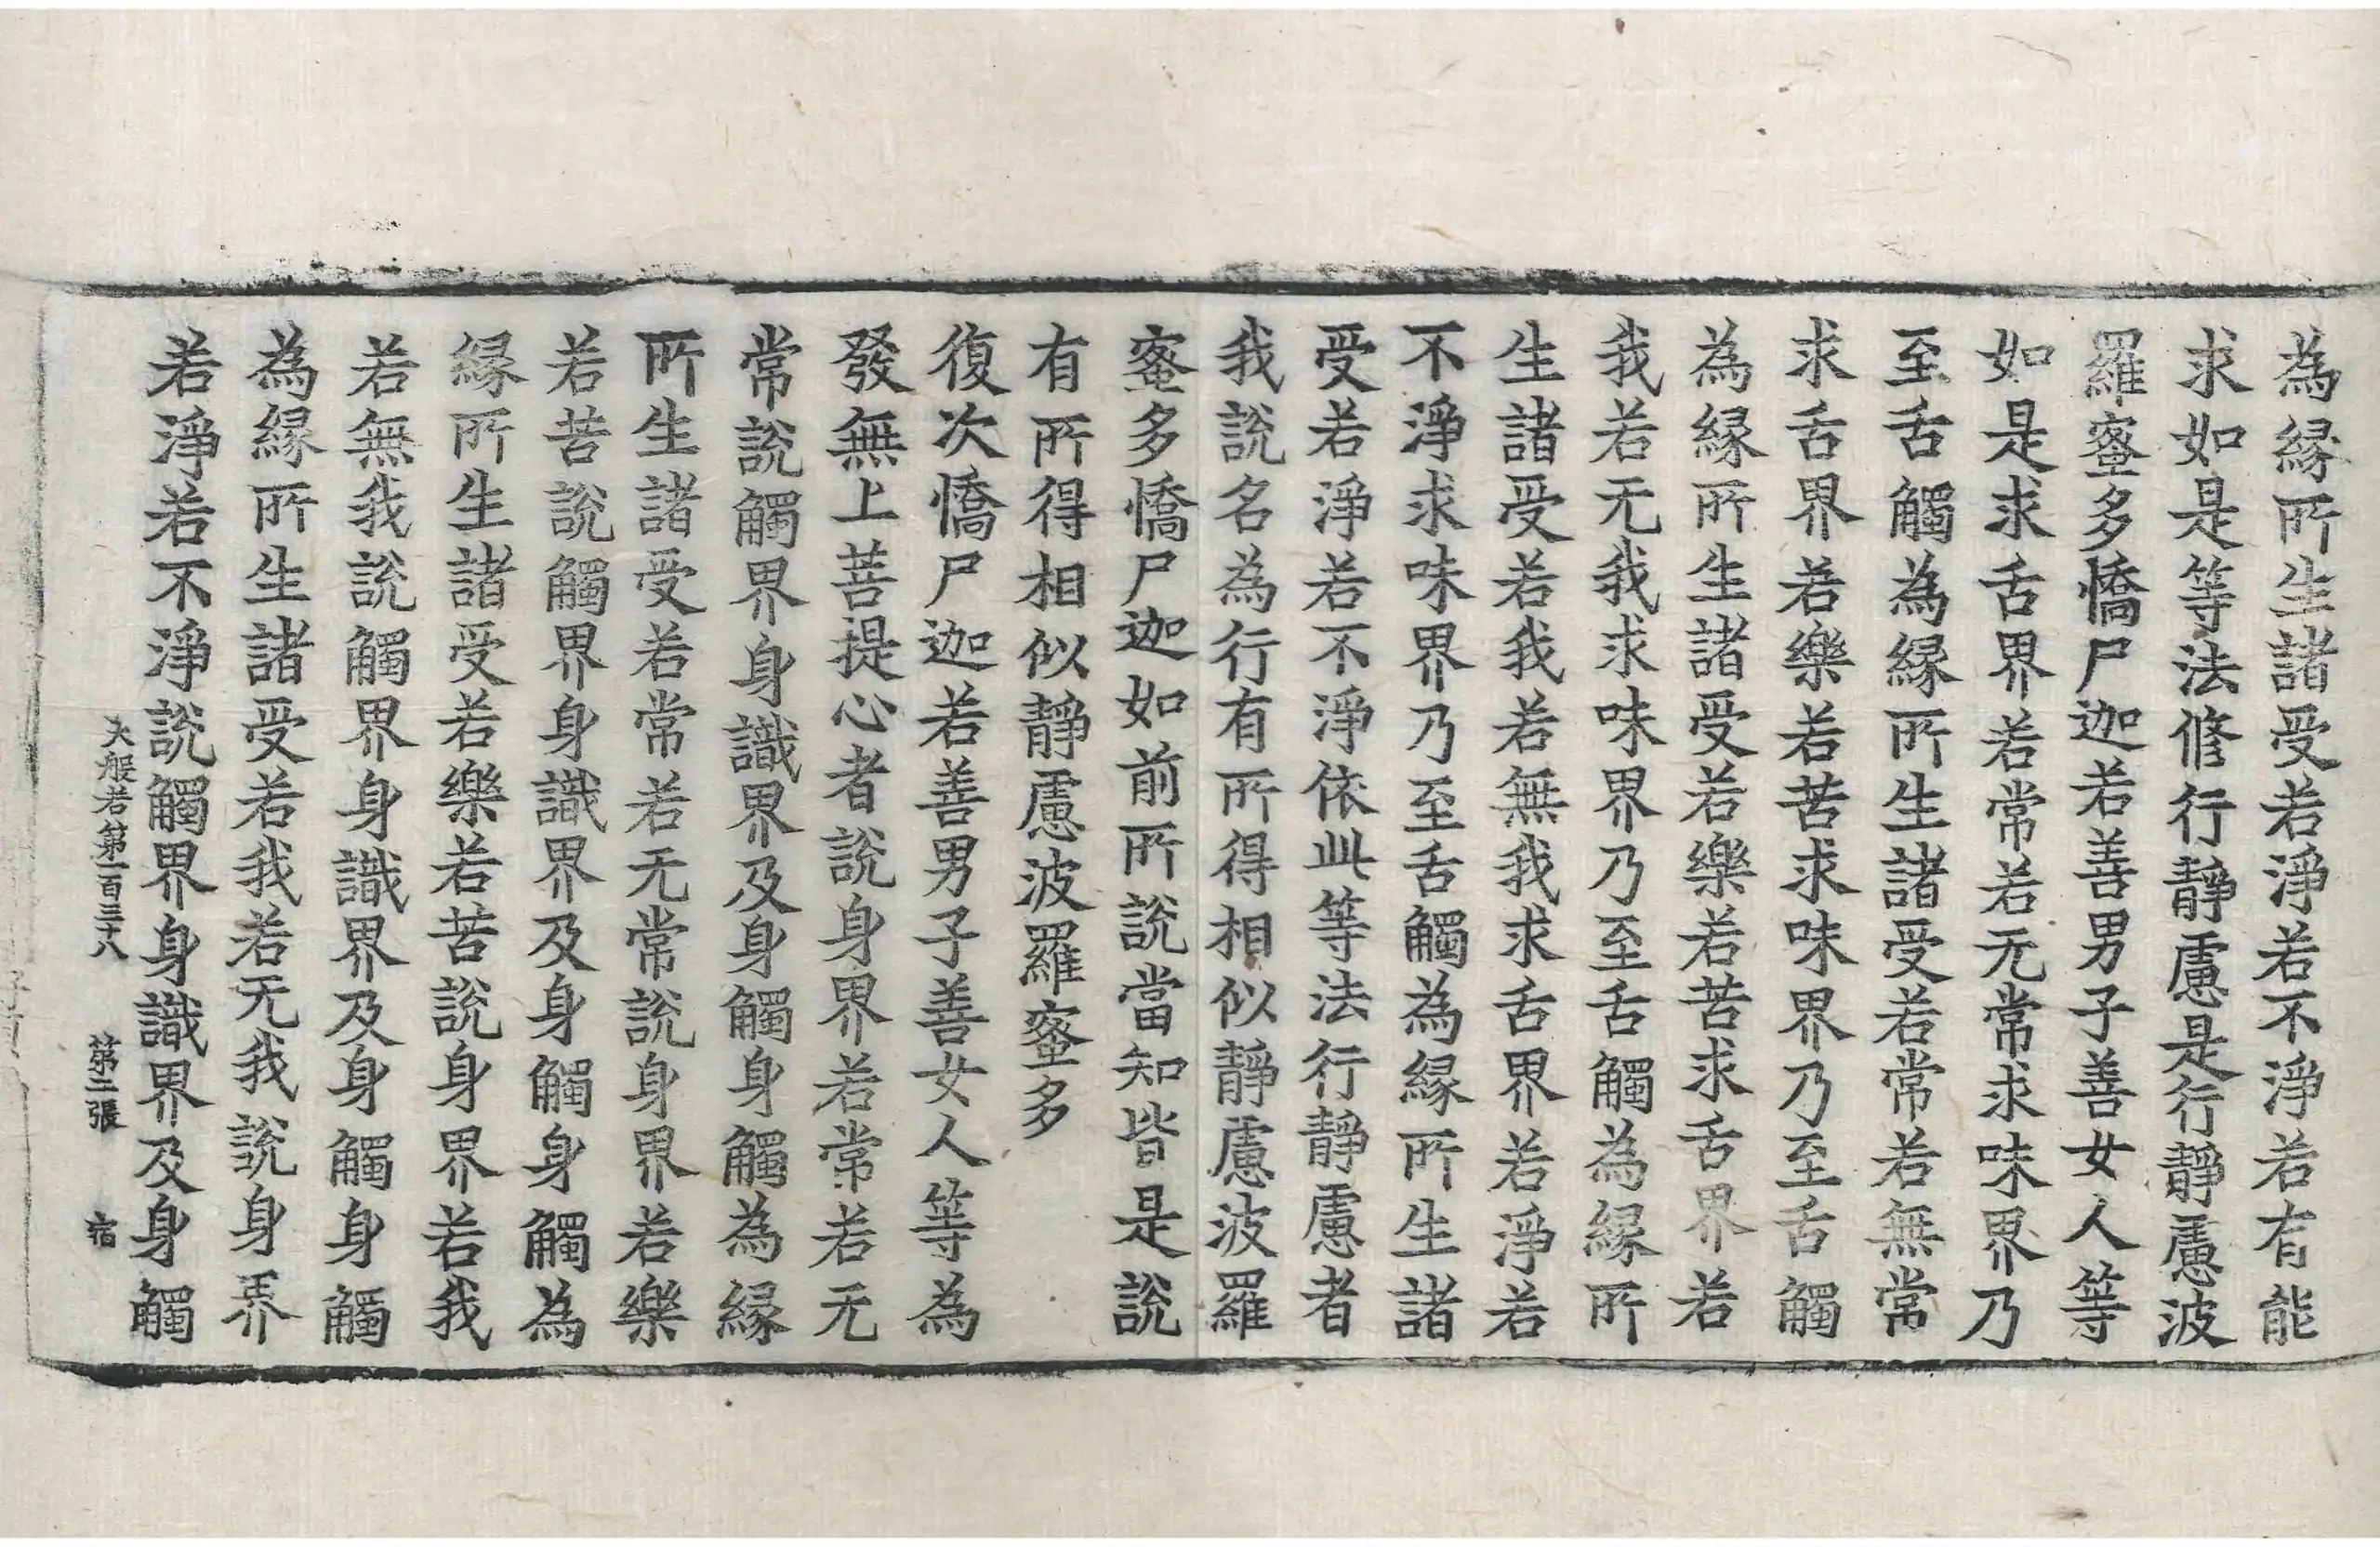 為縁所生諸受若淨若不淨若有能
求如是等法修行靜慮是行靜慮波
羅蜜多憍尸迦若善男子善女人等
如是求舌界若常若无常求味界乃
至舌觸為縁所生諸受若常若無常
求舌界若樂若苦求味界乃至舌觸
為縁所生諸受若樂若苦求舌界若
我若无我求味界乃至舌觸為縁所
生諸受若我若無我求舌界若淨若
不淨求味界乃至舌觸為縁所生諸
受若淨若不淨依此等法行靜慮者
我說名為行有所得相似靜慮波羅
蜜多憍尸迦如前所說當知皆是說
有所得相似靜慮波羅蜜多
復次憍尸迦若善男子善女人等為
發無上菩提心者說身界若常若无
常說觸界身識界及身觸身觸為縁
所生諸受若常若无常說身界若樂
若苦說觸界身識界及身觸身觸為
縁所生諸受若樂若苦說身界若我
若無我說觸界身識界及身觸身觸
為縁所生諸受若我若无我說身界
若淨若不淨說觸界身識界及身觸
大般若第一百三十八 第二張 宿